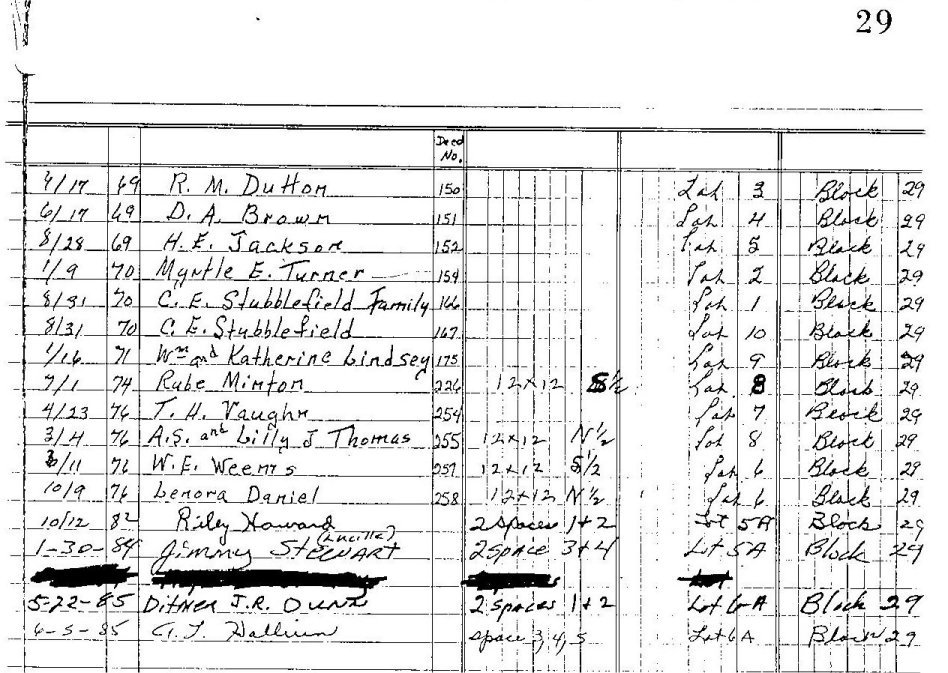 29
Deed No.
4/17 69 R. M. Dutton 150 Lot 3 Block 29
6/17 69 D. A. Brown 151 Lot 4 Block 29
8/28 69 H. E. Jackson 152 Lot 5 Block 29
1/9 70 Myrtle E. Turner 159 Lot 2 Block 29
8/31 70 C. E. Stubblefield Family 166 Lot 1 Block 29
8/31 70 C. E. Stubblefield 167 Lot 10 Block 29
1/16 71 Wm and Katherine Lindsey 175 Lot 9 Block 29
7/1 74 Rube Minton 226 12x12 S½ Lot 8 Block 29
4/23 76 T. H. Vaughn 254 Lot 7 Block 29
3/4 76 A.S. and Lilly J Thomas 255 12x12 N½ Lot 8 Block 29
/11 76 W. E. Weems 257 12x12 S½ Lot 6 Block 29
10/9 76 Lenora Daniel 258 12x12 N½ Lot 6 Block 29
10/12 82 Riley Howard 2 spaces 1+2 Lot 5A Block 29
1-30-84 Jimmy (Lucille) Stewart 2 space 3+4 Lot 5A Block 29
5-22-85 J.R. 2 spaces 1+2 Lot 6-A Block 29
6-5-85 space 3,4,5 Lot 6A Block 29